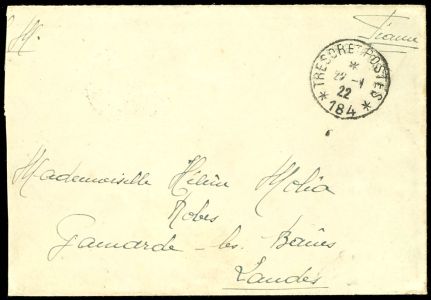 F.M.
France
TRESOR ET POSTES
*
22 - 1
22
* 184 *
Mademoiselle Hélène Molia
Robes
Gamarde - les - Bains
Landes